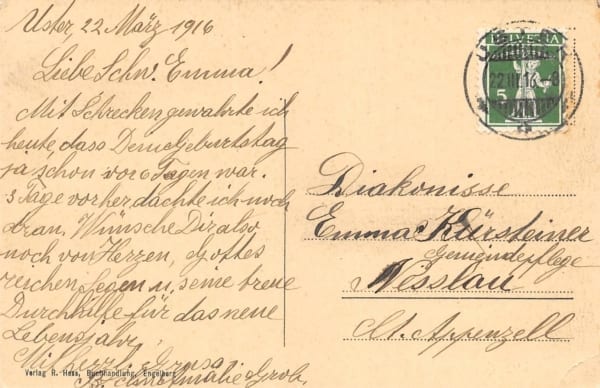 Uster 22 März 1916
Liebe Schw. Emma!
Mit Schrecken gewahrte ich
heute, dass Dein Geburtstag
ja schon vor 6 Tagen war.
3 Tage vorher, dachte ich noch
dran. Wünsche Dir also
noch von Herzen, Gottes
reichen Segen u. seine treue
Durchhilfe für das neue
Lebensjahr,
Mit herzl. Gruss
Amalie Grob.
Verlag R. Hess, Buchhandlung, Engelberg
HELVETIA
5
USTER
22.III.16.-8
Diakonisse
Emma Kürsteiner
Gemeindepflege
Nesslau
Ct. Appenzell